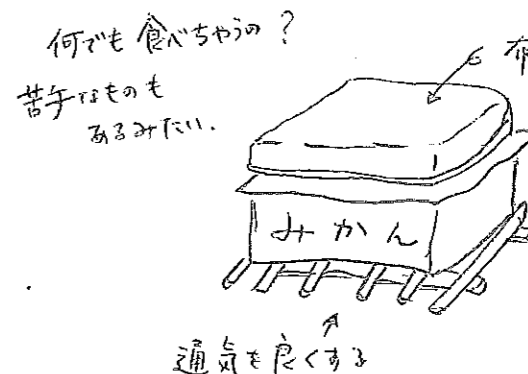 何でも食べちゃうの?
苦手なものも
あるみたい.
布
みかん
通気を良くする